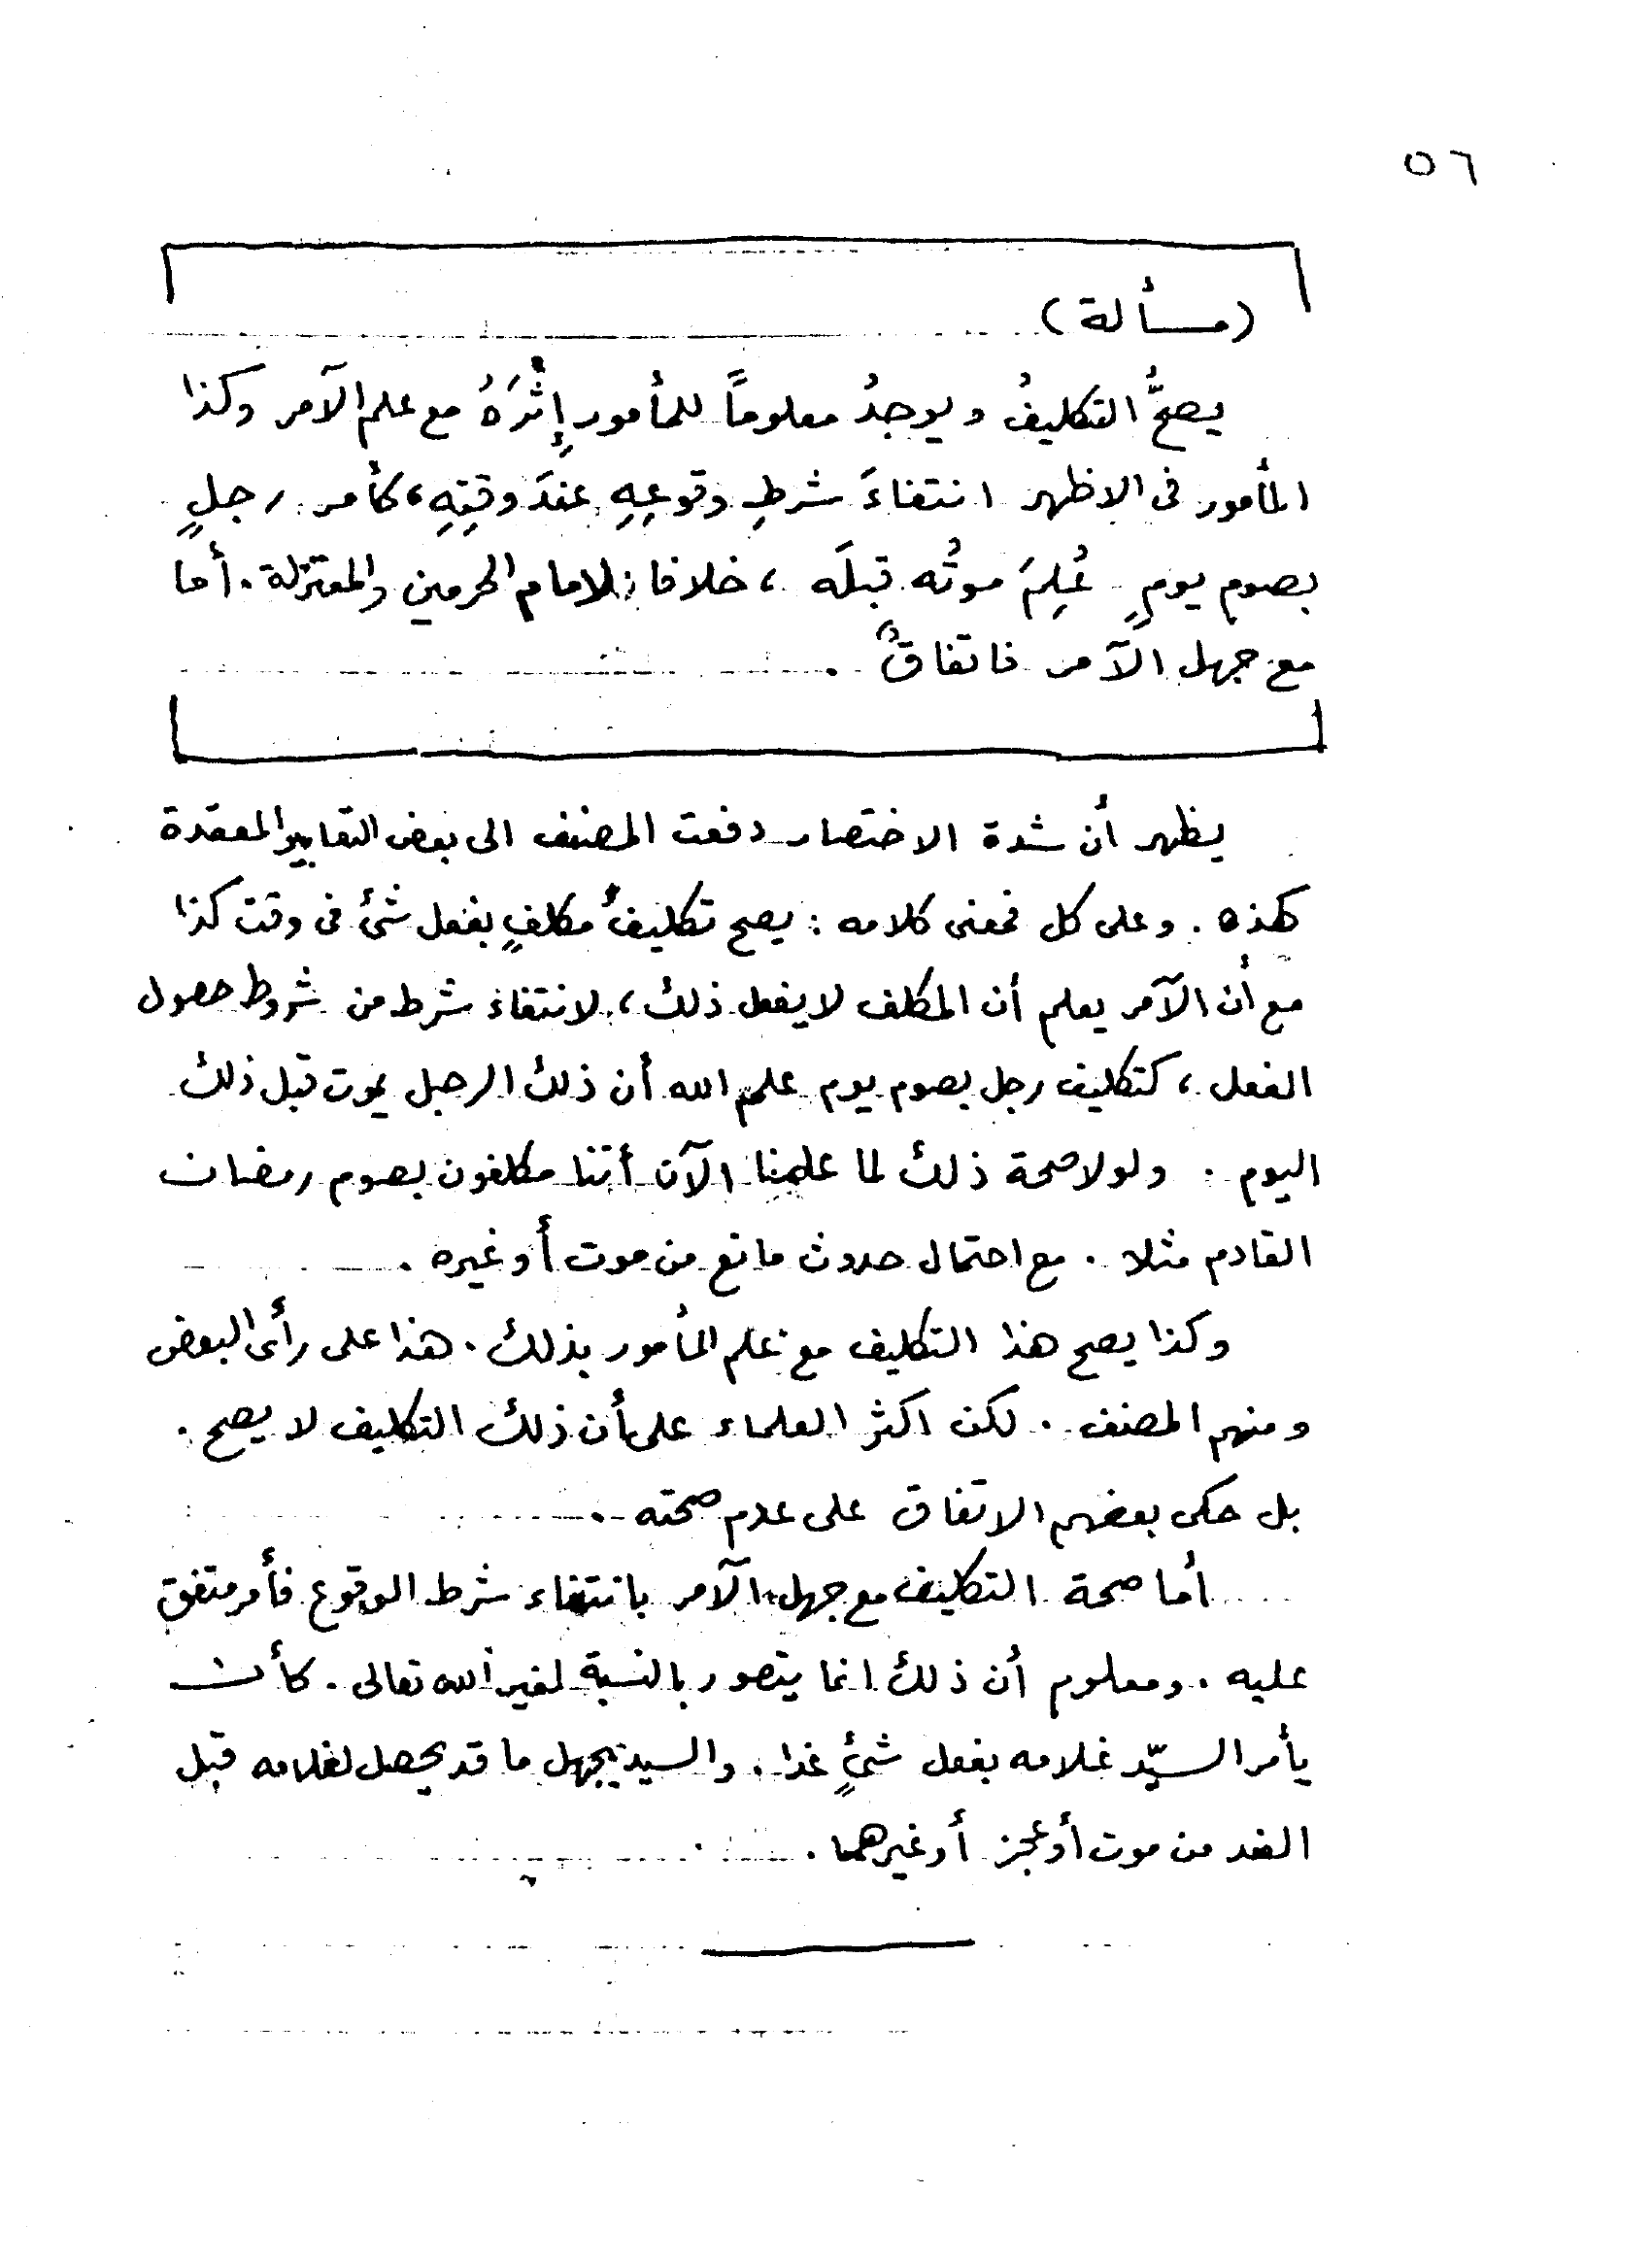 ٥٦
(مسألة)
يصحُّ التكليفُ ويوجدُ معلوماً للمأمور إِثْرَهُ مع علم الآمر وكذا
المأمور فى الاظهر انتفاءَ شرطِ وقوعِهِ عندَ وقتِهِ، كأمر رجلٍ
بصوم يومٍ عُلِمَ موتُه قبلَه ، خلافا للامام الحرمين والمعتزلة . أما
مع جهل الآمر فاتفاقٌ .
يظهر أن شدة الاختصار دفعت المصنف الى بعض التعابير المعقدة
كهذه . وعلى كل فمعنى كلامه : يصح تكليفُ مكلفٍ بفعل شئ فى وقت كذا
مع أن الآمر يعلم أن المكلف لا يفعل ذلك ، لانتفاء شرط من شروط حصول
الفعل ، كتكليف رجل بصوم يوم علم الله أن ذلك الرجل يموت قبل ذلك
اليوم . ولولا صحة ذلك لما علمنا الآن أننا مكلفون بصوم رمضان
القادم مثلا . مع احتمال حدوث مانع من موت أو غيره .
وكذا يصح هذا التكليف مع علم المأمور بذلك . هذا على رأى البعض
ومنهم المصنف . لكن اكثر العلماء على أن ذلك التكليف لا يصح .
بل حكى بعضهم الاتفاق على عدم صحته .
أما صحة التكليف مع جهل الآمر بانتفاء شرط الوقوع فأمر متفق
عليه . ومعلوم أن ذلك انما يتصور بالنسبة لغير الله تعالى . كأن
يأمر السيّد غلامه بفعل شئٍ غدا . والسيد يجهل ما قد يحصل لغلامه قبل
الغد من موت أو عجز أو غيرهما .